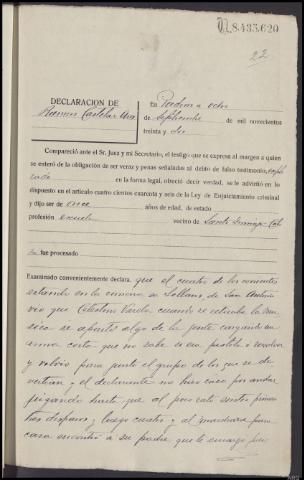 N8.433.620
22
DECLARACION DE
Ramon Castelar
En Padron a ocho
de Septiembre de mil novecientos
treinta y
Compareció ante el Sr. Juez y mi Secretario, el testigo que se expresa al margen a quien
se enteró de la obligación de ser veraz y penas señaladas al delito de falso testimonio,
en la forma legal, ofreció decir verdad, se le advirtió en lo
dispuesto en el artículo cuatro cientos cuarenta y seis de la Ley de Enjuiciamiento criminal
y dijo ser de once años de edad, de estado
profesión escuela vecino de Santo Domingo
no fue procesado
Examinado convenientemente declara. que el cuatro de los corrientes
estando en la de San
vio que Celestino Varela cuando se retiraba la
se apartó algo de la gente cargando un
arma corta que no sabe si era pistola o revolver
y volvio para junto el grupo de los que se di-
vertian, y el declarante no hizo caso por andar
jugando hasta que al poco rato sintio primero
tres disparos y luego cuatro y al marchar para
casa encontró a su padre que le